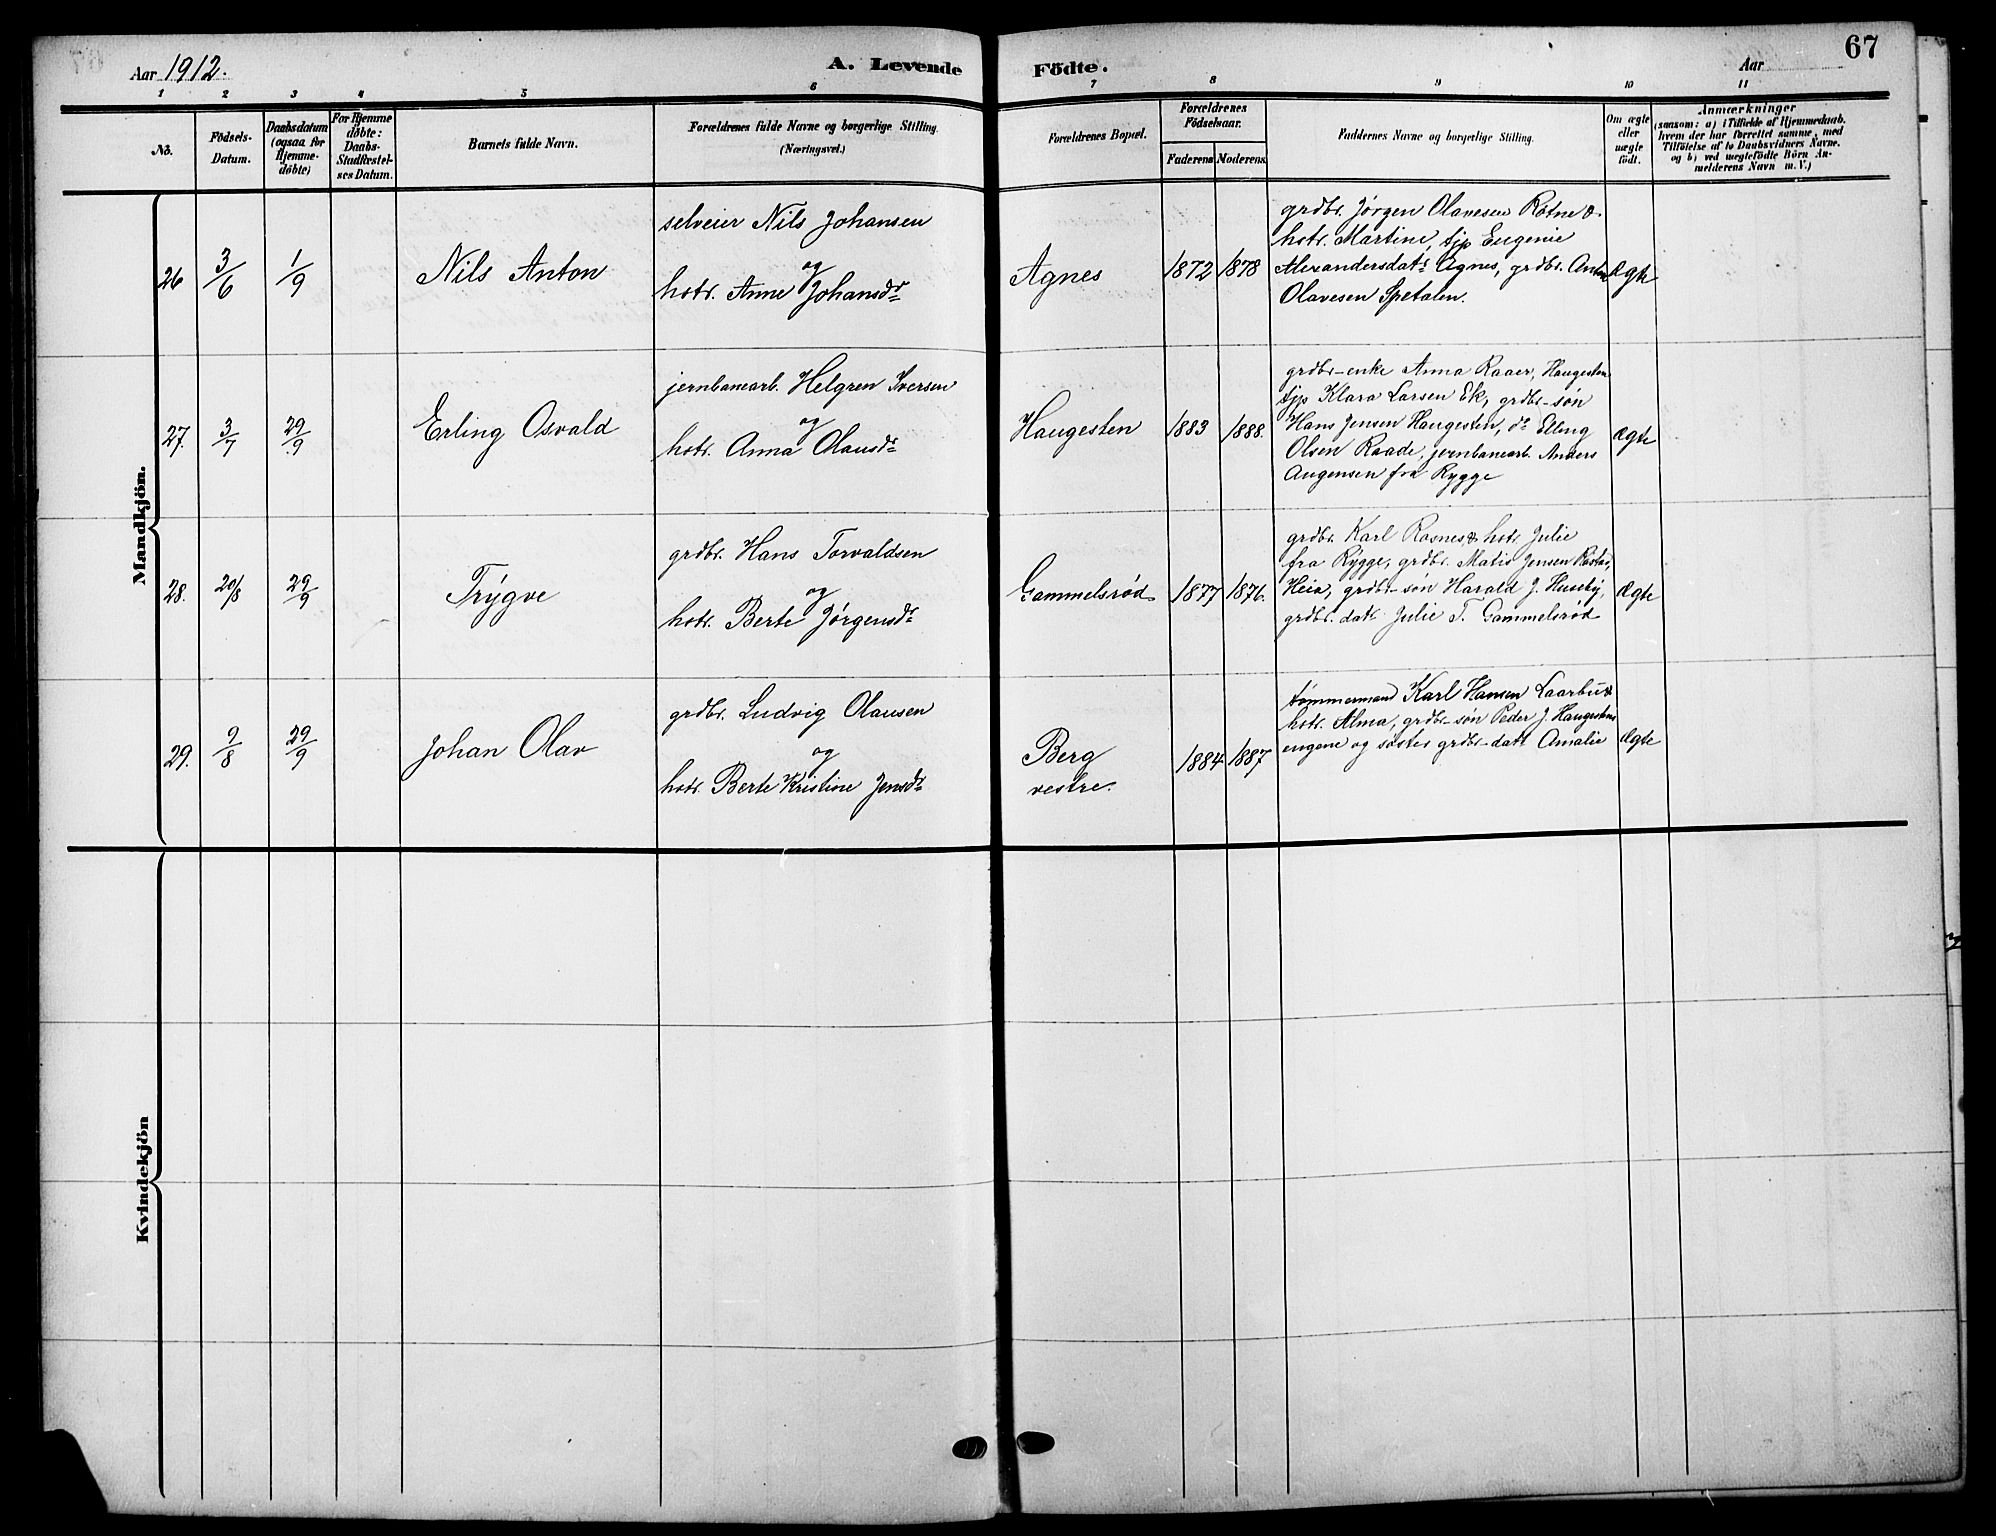 Aar 1912.
A. Levende Födte.
Aar
67
1 2 3 4 5 6 7 8 9 10 11
No.
Födsels-Datum.
Daabsdatum (ogsaa for Hjemme-døbte)
For Hjemme døbte: Daabs-Stadfæstel-ses Datum.
Barnets fulde Navn.
Forældrenes fulde Navne og borgerlige Stilling.
(Næringsvei.)
Forældrenes Bopæl.
Forældrenes Fødselsaar.
Faderens Moderens.
Faddernes Navne og borgerlige Stilling.
Om ægte eller uægte født.
Anmærkninger
(saasom: a) i Tilfælde af Hjemmedaab.
hvem der har forrettet samme, med
Tilföielse af to Daabsvidners Navne.
og b) ved uegtefödte Börn An-
melderens Navn m. V.)
Mandkjön.
26 3/6 1/9 Nils Anton
selveier Nils Johansen
og
hstr. Anne Johansdr
Agnes 1872 1878
grdbr. Jørgen Olavesen Rötne &
hstr. Martine, tjp Eugenie
Alexandersdatr Agnes, grdbr. Anton
Olavesen Spetalen.
Ægte
27. 3/7 29/9 Erling Osvald
jernbanearb. Helgren Iversen
og
hstr. Anna Olausdr
Haugesten 1883 1888.
grdbr-enke Anna Raaer, Haugesten
tjp Klara Larsen Ek, grdbr-søn
Hans Jensen Haugesten, do Elling
Olsen Raade, jernbanearb. Anders
Augensen fra Rygge
Ægte
28. 20/8 29/9 Trygve
grdbr. Hans Torvaldsen
og
hstr. Berte Jørgensdr
Gammelsrød 1877 1876.
grdbr. Karl Rosnes & hstr Julie
fra Rygge, grdbr. Matis Jensen
Heia, grdbr-søn Harald J. Huseby,
grdbr. datt Julie T. Gammelsrød
Ægte
29. 9/8 29/9 Johan Olav
grdbr. Ludvig Olausen
og
hstr. Berte Kristine Jensdr
Berg
vestre.
1884 1887
tømmermand Karl Hansen Laarbu &
hstr. Alma, grdbr-søn Peder J. Haugestens
engene og søster grdbr-datt Amalie
Ægte
Kvindekjön